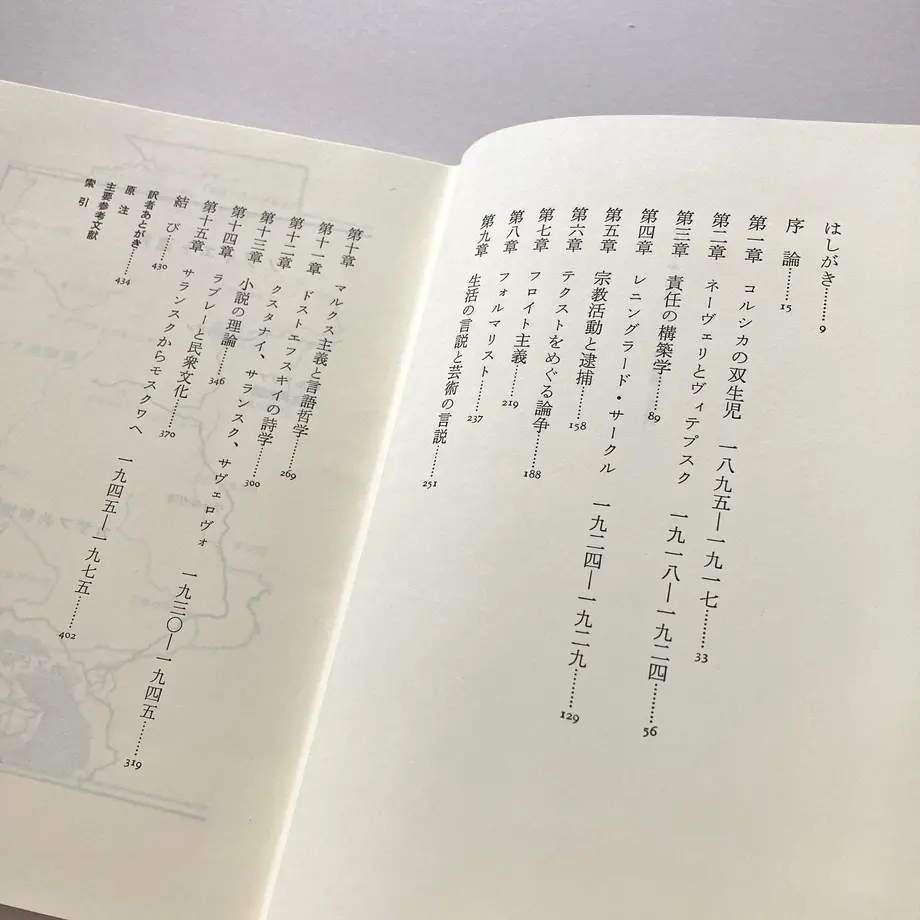 はしがき………9
序　論………15
第一章　コルシカの双生児　一八九五―一九一七………33
第二章　ネーヴェリとヴィテプスク　一九一八―一九二四………56
第三章　責任の構築学………89
第四章　レニングラード・サークル　一九二四―一九二九………129
第五章　宗教活動と逮捕………158
第六章　テクストをめぐる論争………188
第七章　フロイト主義………219
第八章　フォルマリスト………237
第九章　生活の言説と芸術の言説………251
第十章　マルクス主義と言語哲学………269
第十一章　ドストエフスキイの詩学………300
第十二章　クスタナイ、サランスク、サヴェロヴォ　一九三〇―一九四五………319
第十三章　小説の理論………346
第十四章　ラブレーと民衆文化………370
第十五章　サランスクからモスクワへ　一九四五―一九七五………402
結　び………430
訳者あとがき………434
原　注
主要参考文献
索　引